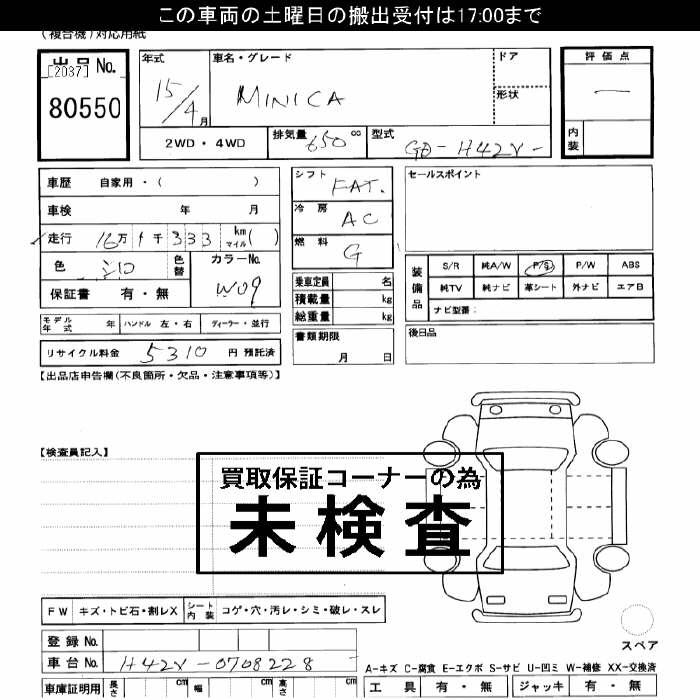 この車両の土曜日の搬出受付は17:00まで
(複合機)対応用紙
出品 No.
[2037]
80550
年式 15/4 月
車名・グレード
MINICA
ドア
形状
評価点
—
内装
2WD・4WD
排気量 650 cc
型式
車歴 自家用・( )
車検 年 月
走行 16万 1千 333 km マイル ( )
色
色替
カラーNo.
W09
保証書 有・無
シフト FAT.
冷房 AC
燃料 G
乗車定員 名
積載量 kg
総重量 kg
書類期限
月 日
セールスポイント
装備品
S/R 純A/W P/S P/W ABS
純TV 純ナビ 革シート 外ナビ エアB
ナビ型番:
後日品
モデル年式 年 ハンドル 左・右 ディーラー・並行
リサイクル料金 5310 円 預託済
【出品店申告欄(不良箇所・欠品・注意事項等)】
【検査員記入】
買取保証コーナーの為
未検査
FW キズ・トビ石・割レX シート内装 コゲ・穴・汚レ・シミ・破レ・スレ
登録 No.
車台 No. H42V-0708228
車庫証明用 長さ cm 幅 cm 高さ cm
スペア
A-キズ C-腐食 E-エクボ S-サビ U-凹ミ W-補修 XX-交換済
工具 有・無 ジャッキ 有・無